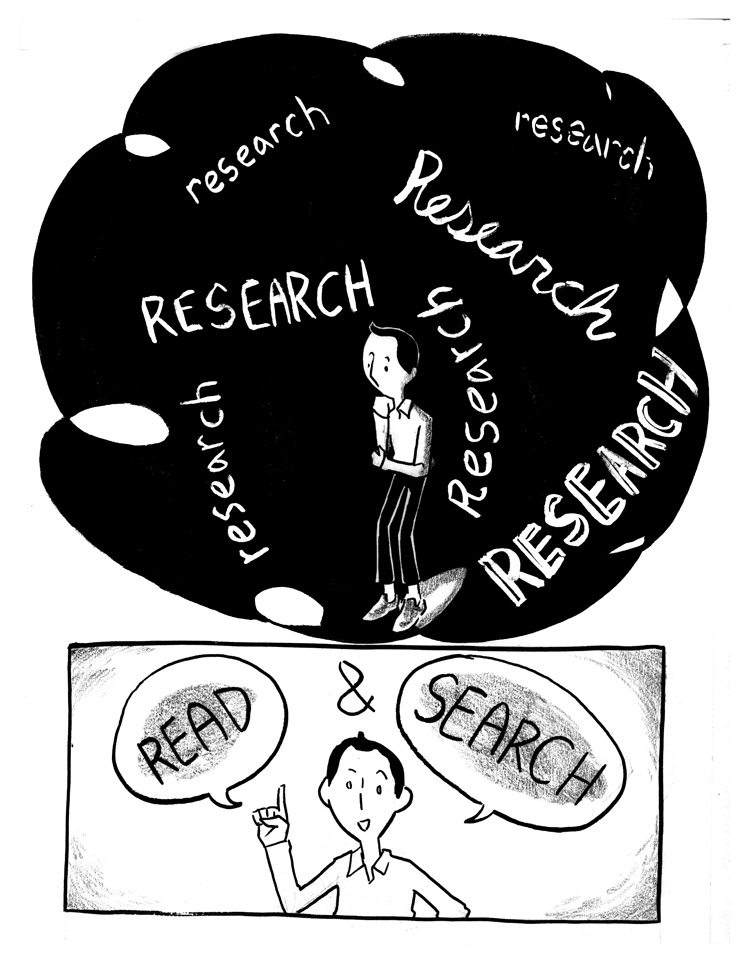 research
research
Research
RESEARCH
Research
research
RESEARCH
READ
&
SEARCH